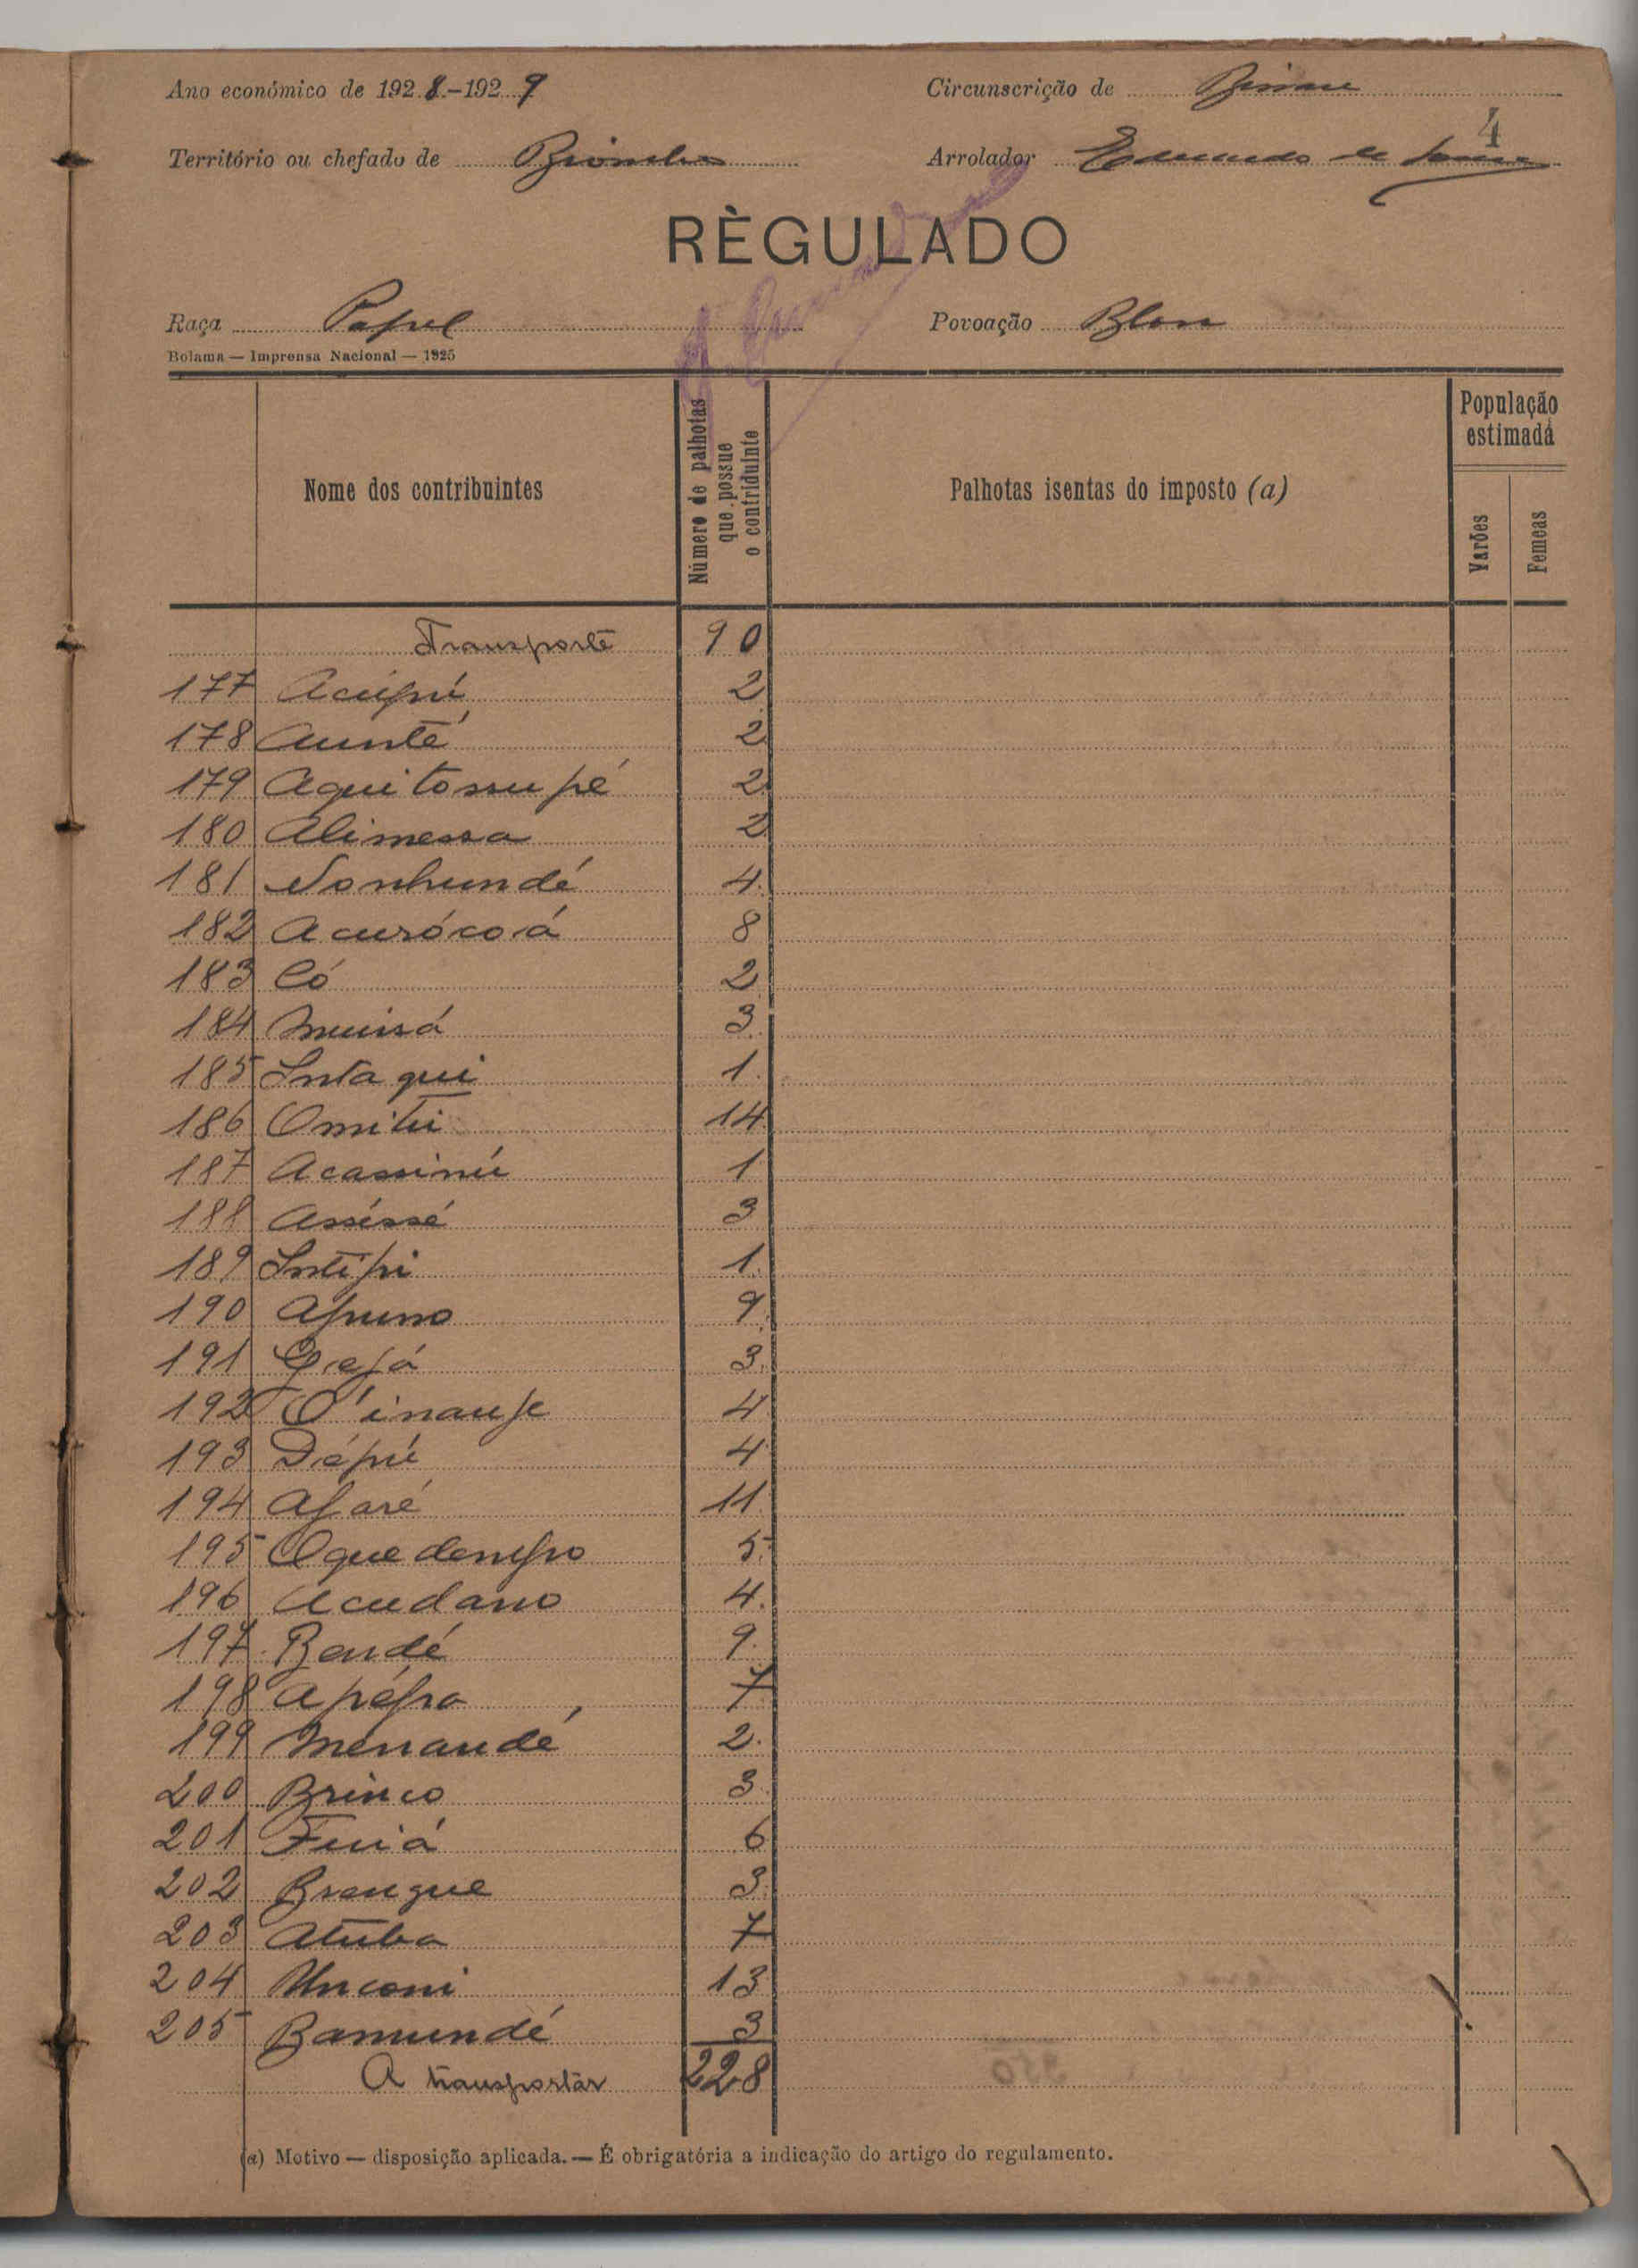 Ano económico de 1928-1929
Circunscrição de
4
Território ou chefado de Biombo
Arrolador Edmundo de
RÈGULADO
Raça Papel
Povoação Blon
Bolama — Imprensa Nacional — 1925
Nome dos contribuintes
Número de palhotas que possue o contriduinte
Palhotas isentas do imposto (a)
População estimada
Varões
Femeas
Transporte 90
177 Acúpú 2
178 Aunté 2
179 Aquitossupé 2
180 Alimessa 2
181 Nonhundé 4
182 Acurócoá 8
183 Có 2
184 Muissá 3
185 Intaqui 1
186 Omitui 14
187 Acassinú 1
188 Asséssé 3
189 Intépi 1
190 Apumo 9
191 3
192 O'inaufe 4
193 Dépú 4
194 Afaré 11
195 Oquedenfso 5
196 Acudano 4
197 Bendé 9
198 Apépa 7
199 Menaudé 2
200 Brinco 3
201 Fuiá 6
202 Brangue 3
203 Atuba 7
204 Unconi 13
205 Bamundé 3
A transportar 228
(a) Motivo — disposição aplicada. — É obrigatória a indicação do artigo do regulamento.